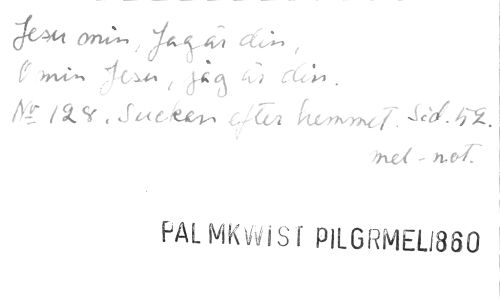 Jesu min, Jag är din,
O min Jesu, jag är din.
No 128. Sucken efter hemmet. Sid. 52.
mel-not.
PALMKWIST PILGRMEL1860